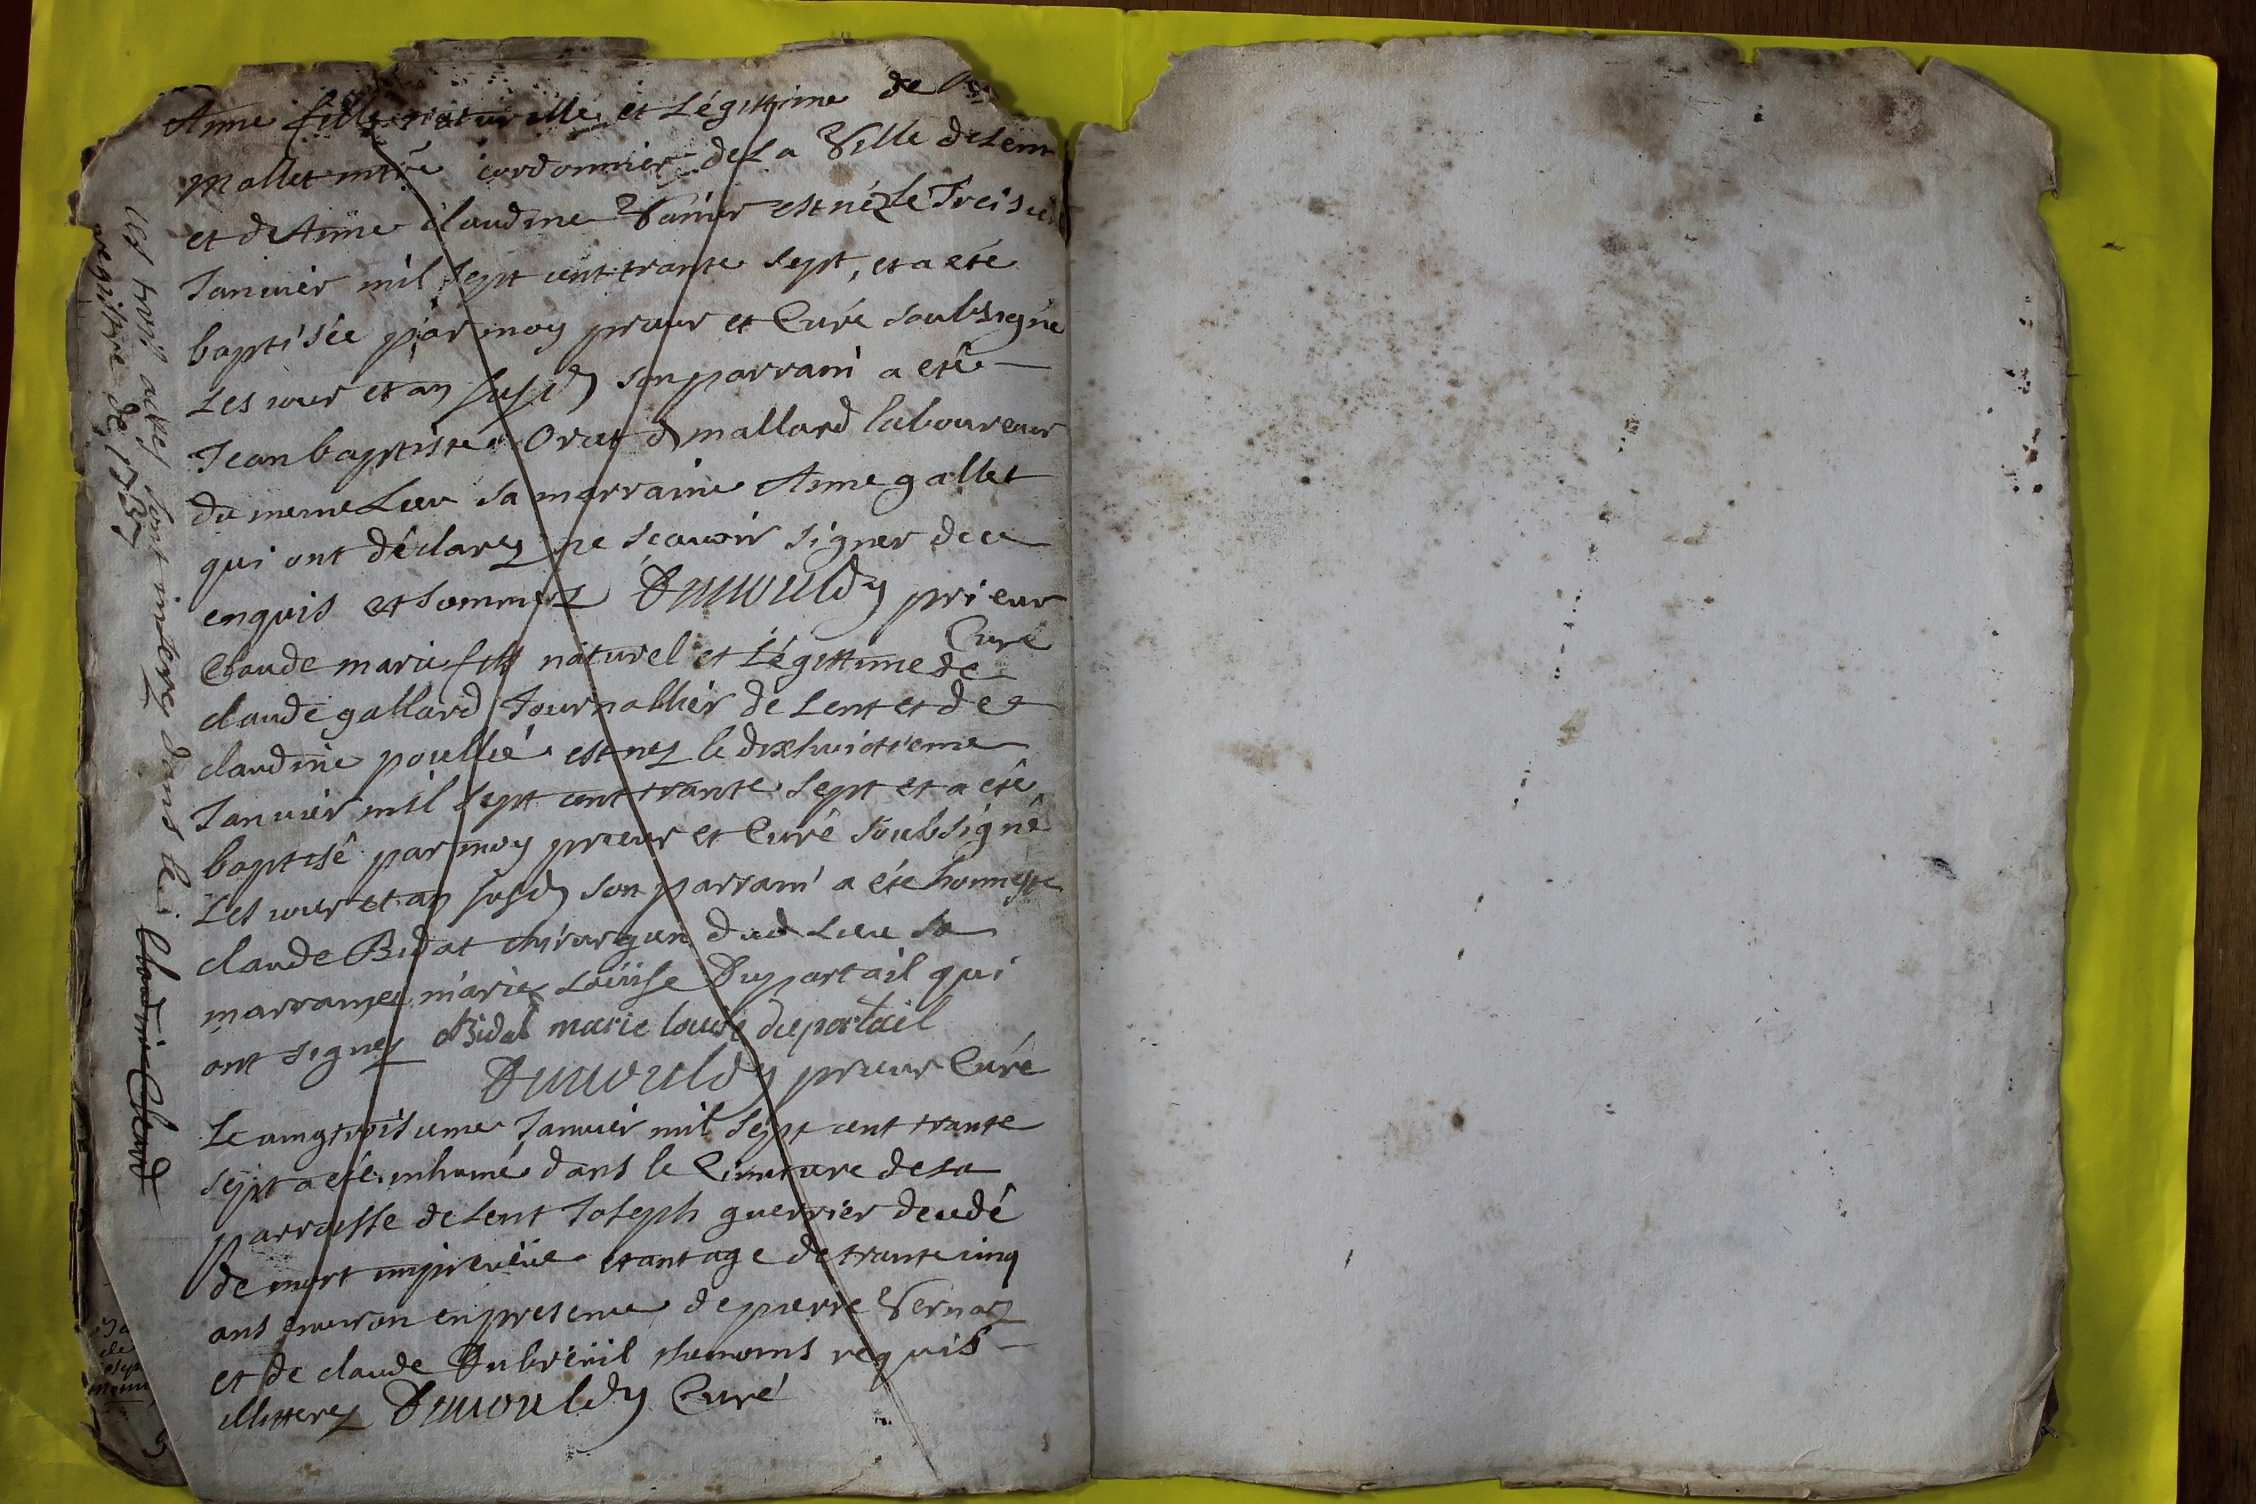 Anne fille naturelle et Légittime de
mallet mtre cordonnier de La Ville de Lent
et de Anne Claudine Vanier est néz le Treisie
Januier mil sept cent trante sept, et a eté
baptisée par moy prieur et Curé soubsigné
Les iour et an susd son parrain a eté
Jean baptiste Orat d mallard laboureur
du meme Lieu sa marraine Anne gallet
qui ont déclarez ne scauoir signer de ce
enquis et sommez prieur
Curé
Claude marie fils naturel et Légittime de
claude gallard Journallier de Lent et de
claudine poullié est nez le dixhuictieme
Januier mil sept cent trante sept et a eté
baptisé par moy prieur et Curé soubsigné
Les iour et an susd son parrain a eté honneste
claude Bidat chirurgien dud Lieu sa
marraine marie Louise Duportail qui
ont signez Bidat marie louise duportail
prieur Curé
Le uingtroisieme Januier mil sept cent trante
sept a eté inhumé dans le Cimetiere de La
parroisse de Lent Joseph guerrier decedé
de mort impreuüe etant age de trante cinq
ans enuiron en presence de pierre Vernaz
et de claude Dubreüil themoins requis
illitterez Curé
Ces trois actes sont inserez dans le
registre de 1737
Claudine Chanel